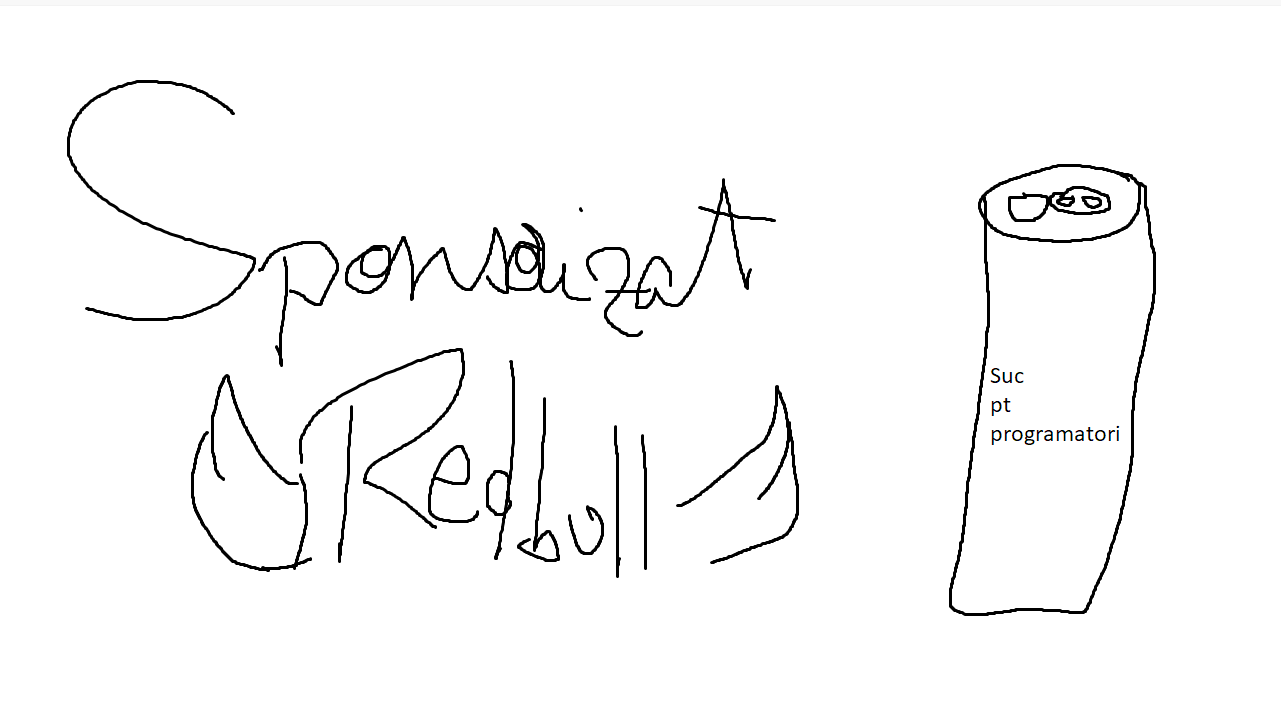 Sponsorizat
Redbull
Suc
pt
programatori